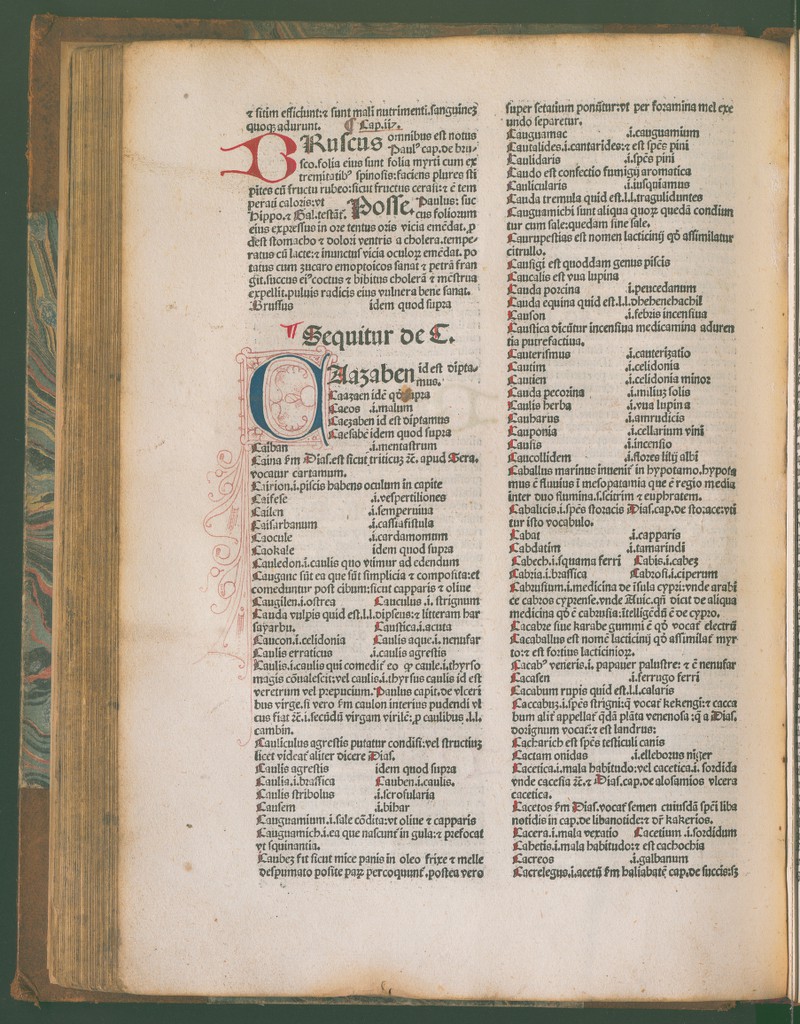 ⁊ sitim efficiunt:⁊ sunt mali nutrimenti.sanguinez
quoqꝫ adurunt. ¶ Cap.iiꝫ.
BRuscus omnibus est notus
Paulꝰ cap.de bru⸗
sco.folia eius sunt folia myrti cum ex
tremitatibꝰ spinosis:faciens plures sti
pites cū fructu rubeo:sicut fructus cerasi:⁊ ē tem
perati caloris:vt Posse. Paulus: suc
hippo.⁊ Gal.testāt. cus foliorum
eius expressus in ore tentus oris vicia emēdat.ꝓ
dest stomacho ⁊ dolori ventris a cholera.tempe⸗
ratus cū lacte:⁊ inunctus vicia oculoꝝ emēdat. po
tatus cum zucaro emoptoicos sanat ⁊ petrā fran
git.succus eiꝰcoctus ⁊ bibitus cholerā ⁊ mēstrua
expellit.puluis radicis eius vulnera bene sanat.
Brussus idem quod supra
¶ Sequitur de C.
CAazaben id est dipta⸗
mus.
Caazaen idē qd supra
Caeos .i.malum
Caezaben id est diptamus
Caesabē idem quod supra
Caiban .i.mentastrum
Caina ẜm Dias.est sicut triticuꝫ ⁊c. apud Sera.
vocatur cartamum.
Cairion.i.piscis habens oculum in capite
Caifese .i.vespertiliones
Cailen .i.semperuiua
Caisarbanum .i.cassiafistula
Caocule .i.cardamomum
Caokale idem quod supra
Cauledon.i.caulis quo vtimur ad edendum
Caugane sūt ea que sūt simplicia ⁊ composita:et
comeduntur post cibum:sicut capparis ⁊ oliue
Caugilen.i.ostrea Cauculus .i. strignum
Cauda vulpis quid est.l.l.dipseus:⁊ litteram har
sayarbu. Caustica.i.acuta
Caucon.i.celidonia Caulis aque.i. nenufar
Caulis erraticus .i.caulis agrestis
Caulis.i.caulis qui comedit̄ eo ꝙ caule.i.thyrso
magis cōualescit:vel caulis.i.thyrsus caulis id est
veretrum vel prepucium.Paulus capit.de vlceri
bus virge.si vero ẜm caulon interius pudendi vl
cus fiat ⁊c.i.secūdū virgam virilē:ꝓ caulibus .l.l.
cambin.
Cauliculus agrestis putatur condisi:vel structiuꝫ
licet videat̄ aliter dicere Dias.
Caulis agrestis idem quod supra
Caulia.i.brassica Cauben.i.caulis.
Caulis stribolus .i.scrosularia
Causem .i.bihar
Cauguamium.i.sale cōdita:vt oliue ⁊ capparis
Cauguamich.i.ea que nascunt̄ in gula:⁊ prefocat
vt squinantia.
Caubeꝫ fit sicut mice panis in oleo frixe ⁊ melle
despumato posite paꝝ percoquunt̄.postea vero
super setatium ponūtur:vt per foramina mel exe
undo separetur.
Cauguamac .i.cauguamium
Cautalides.i.cantarides:⁊ est spēs pini
Caulidaris .i.spēs pini
Caudo est confectio fumigij aromatica
Caulicularis .i.iusquiamus
Cauda tremula quid est.l.l.traguliduntes
Cauguamichi sunt aliqua quoꝝ quedā condiun
tur cum sale:quedam sine sale.
Caurupestias est nomen lacticinij qd assimilatur
citrullo.
Causigi est quoddam genus piscis
Caucalis est vua lupina
Cauda porcina .i.peucedanum
Cauda equina quid est.l.l.dhehenehachil
Causon .i.febris incensiua
Caustica dicūtur incensiua medicamina aduren
tia putrefactiua.
Cauterismus .i.cauterizatio
Cautim .i.celidonia
Cautien .i.celidonia minor
Cauda pecorina .i.miliuꝫ solis
Caulis herba .i.vua lupina
Cauharus .i.amrudicis
Cauponia .i.cellarium vini
Causis .i.incensio
Caucollidem .i.flores lilij albi
Caballus marinus inuenit̄ in hypotamo.hypota
mus ē fluuius ī mesopatamia que ē regio media
inter duo flumina.s.scirim ⁊ euphratem.
Cabalicis.i.spēs storacis Dias.cap.de storace:vti
tur isto vocabulo.
Cabat .i.capparis
Cabdatim .i.tamarindi
Cabech.i.squama ferri Cabis.i.cabeꝫ
Cabria.i.brassica Cabrosi.i.ciperum
Cabrusium.i.medicina de īsula cypri:vnde arabi
ce cabros cyprense.vnde Auic.qn̄ dicit de aliqua
medicina qd ē cabrusia:ītelligēdū ē de cypro.
Cacabre siue karabe gummi ē qd vocat̄ electrū
Cacaballus est nomē lacticinij qd assimilat̄ myr
to:⁊ est fortius lacticinioꝝ.
Cacabꝰ veneris.i. papauer palustre: ⁊ ē nenufar
Cacasen .i.ferrugo ferri
Cacabum rupis quid est.l.l.calaris
Caccabuꝫ.i.spēs strigni:q̄ vocat̄ kekengi:⁊ cacca
bum alit̄ appellat̄ qdā plāta venenosa :q̄ a Dias.
dorignum vocat̄:⁊ est landrus:
Cacharich est spēs testiculi canis
Cactam onidas .i.elleborus niger
Cacetica.i.mala habitudo:vel cacetica.i. sordida
vnde cacesia ⁊c.⁊ Dias.cap.de alosamios vlcera
cacetica.
Cacetos ẜm Dias.vocat̄ semen cuiusdā spēi liba
notidis in cap.de libanotide:⁊ dr̄ kakerios.
Cacera.i.mala vexatio Cacetium .i.sordidum
Cahetis.i.mala habitudo:⁊ est cachochia
Cacreos .i.galbanum
Cacrelegus.i.acetū ẜm haliabatē cap.de succis:sꝫ